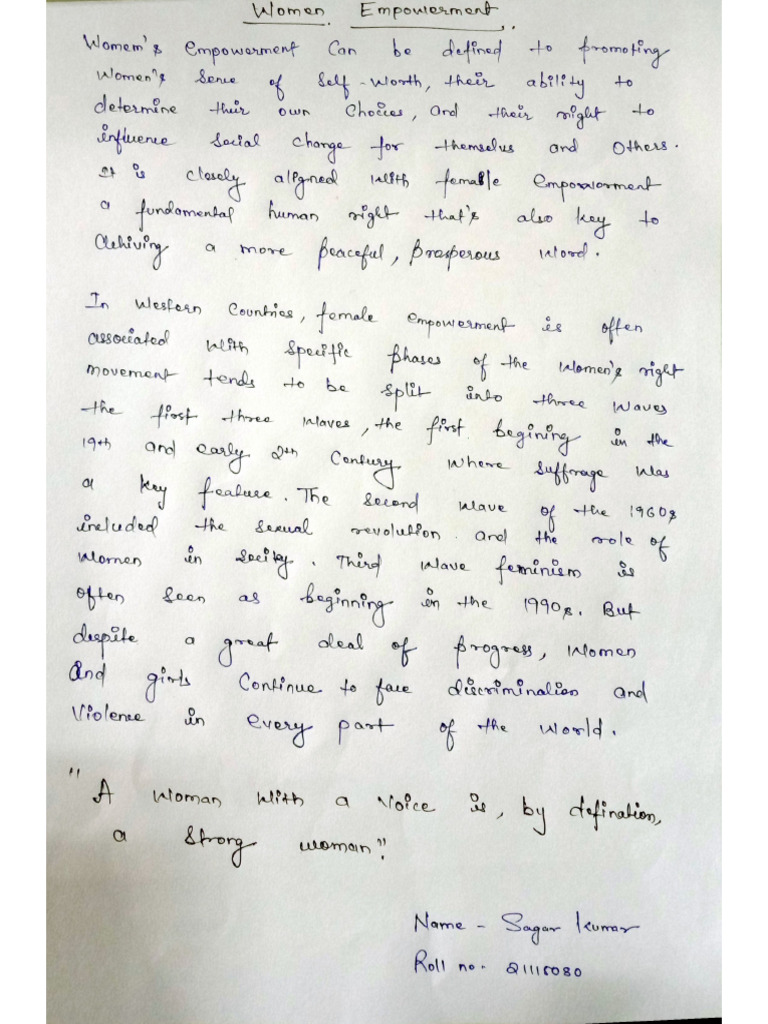 Women Empowerment
Womem's empowerment Can be defined to promoting
Women's Sense of Self-Worth, their ability to
determine their own Choices, and their right to
influence Social Change for themselves and Others.
It is closely aligned With female empowerment
a fundamental human right that's also key to
Achiving a more peaceful, prosperous Word.
In Western Countries, female empowerment is often
associated with specific phases of the Women's right
movement tends to be split into three waves
the first three waves, the first begining in the
19th and early 2th Century Where suffrage was
a key feature. The second wave of the 1960s
included the sexual revolution and the role of
Women in socity. Third wave feminism is
often seen as beginning in the 1990s. But
despite a great deal of progress, Women
And girls Continue to face discrimination and
Violence in every part of the world.
"A Woman With a Voice is, by defination,
a strong woman".
Name - Sagar Kumar
Roll no. 21115080